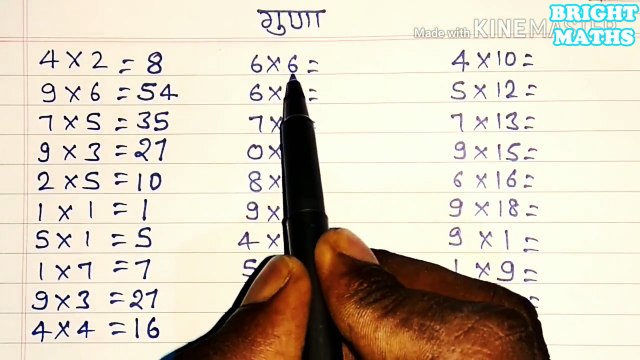 गुणा
Made with KINEMASTER
BRIGHT
MATHS
4 × 2 = 8
9 × 6 = 54
7 × 5 = 35
9 × 3 = 27
2 × 5 = 10
1 × 1 = 1
5 × 1 = 5
1 × 7 = 7
9 × 3 = 27
4 × 4 = 16
6 × 6 =
6 × =
7 ×
0 ×
8 ×
9 ×
4 ×
5
4 × 10 =
5 × 12 =
7 × 13 =
9 × 15 =
6 × 16 =
9 × 18 =
9 × 1 =
1 × 9 =
=